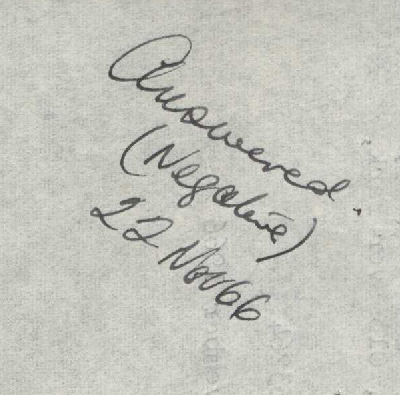 Answered.
(Negative)
22 Nov 66